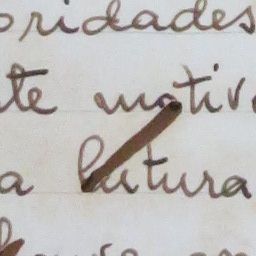 oridades
te motiv
a futura